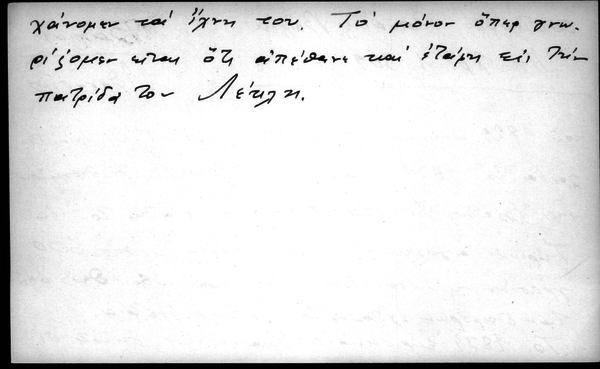 χάνομεν τά ἴχνη του. Τό μόνον ὅπερ γνω-
ρίζομεν εἶναι ὅτι ἀπέθανε καί ἐτάφη εἰς τήν
πατρίδα του